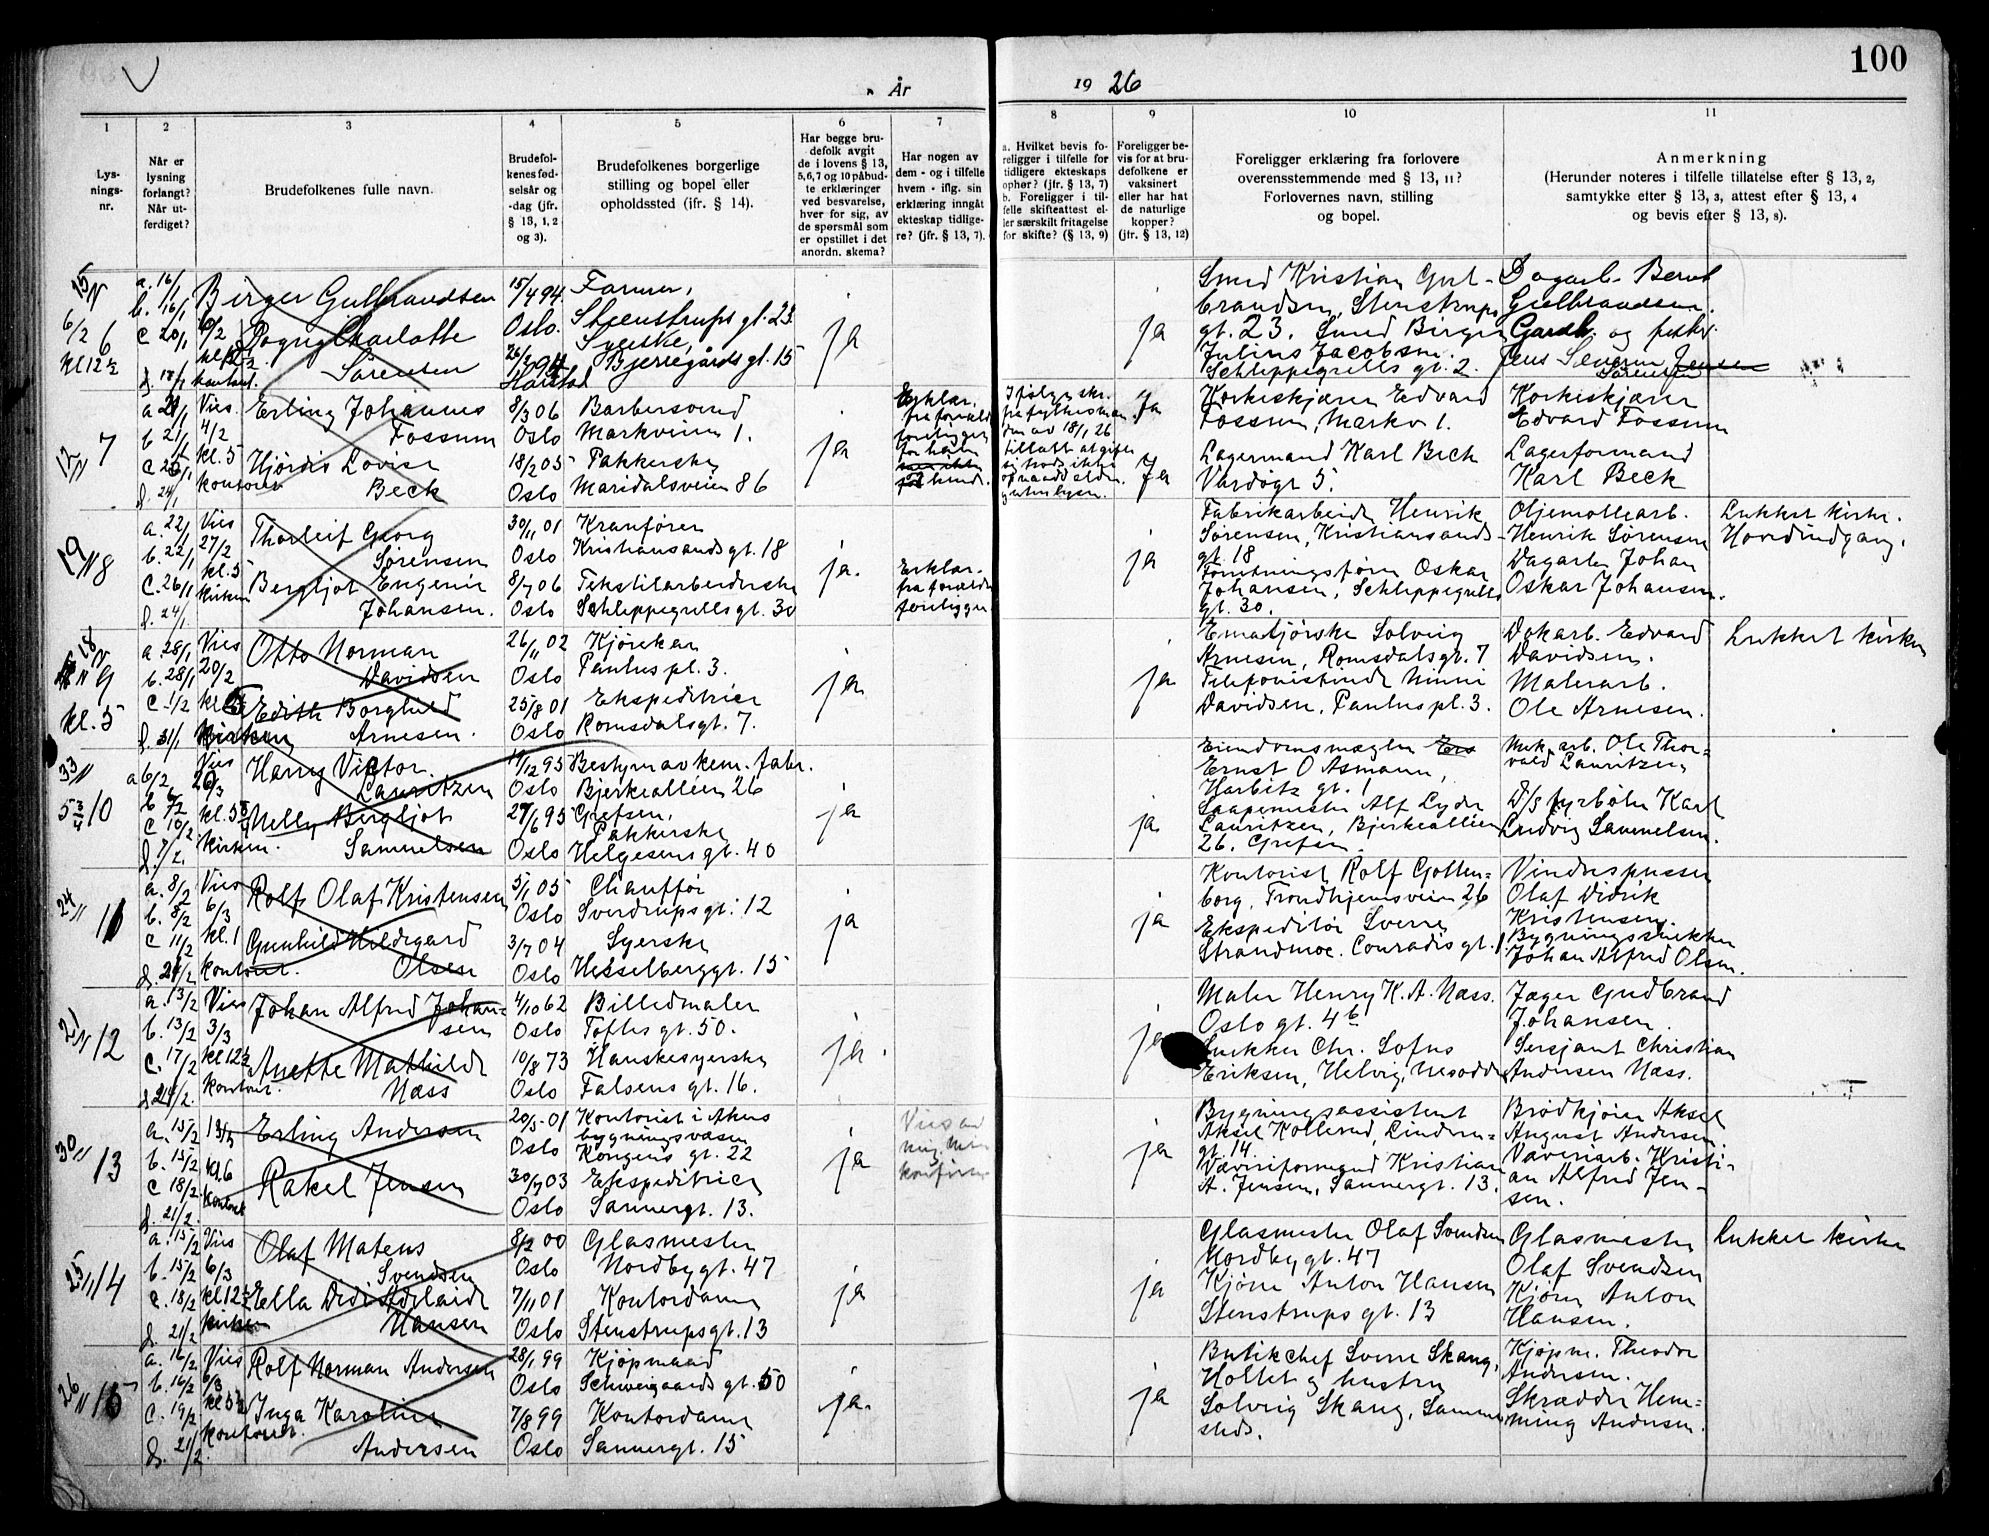 100
År
19 26
1
2
3
4
5
6
7
8
9
10
11
Lys-
nings-
nr.
Når er
lysning
forlangt?
Når ut-
ferdiget?
Brudefolkenes fulle navn.
Brudefol-
kenes fød-
selsår og
-dag (jfr.
§ 13, 1, 2
og 3).
Brudefolkenes borgerlige
stilling og bopel eller
opholdssted (ifr. § 14).
Har begge bru-
defolk avgit
de i lovens § 13,
5,6,7 og 10 påbud-
te erklæringer
ved besvarelse,
hver for sig, av
de spørsmål som
er opstillet i det
anordn. skema?
Har nogen av
dem - og i tilfelle
hvem - iflg. sin
erklæring inngåt
ekteskap tidlige-
re? (jfr. § 13, 7).
a. Hvilket bevis fo-
religger i tilfelle for
tidligere ekteskaps
ophør? (jfr. § 13, 7)
b. Foreligger i til-
felle skifteattest el-
ler særskilt fritagelse
for skifte? (§ 13, 9)
Foreligger be-
vis for at bru-
defolkene er
vaksinert
eller har hat
de naturlige
kopper?
(jfr. § 13, 12)
Foreligger erklæring fra forlovere
overensstemmende med § 13, 11?
Forlovernes navn, stilling
og bopel.
Anmerkning
(Herunder noteres i tilfelle tillatelse efter § 13, 2,
samtykke efter § 13, 3, attest efter § 13, 4
og bevis efter § 13, 8).
6
a. 16/1
b. 16/1
c 20/1
6/2
Birger Gulbrandsen
Dagny Charlotte
Sørensen
15/4 94.
Oslo.
Harstad
Farmer,
Steenstrups gt. 23
Syerske,
Bjerregårds gt. 15
ja
ja
Smed Kristian Gul-
brandsen, Stenstrups
gt. 23. Smed Birger
Julius Jacobsen.
Schleppegrells gt. 2.
Dagarb. Bernt
Gulbrandsen.
Gardb. og fisker.
Jens Severin Jensen
Sørensen
7
a 21/1
b 21/1
d. 24/1
Vies.
4/2
kl. 5
kontoret
Erling Johannes
Fossum
Hjördis Lovise
Beck
8/3 06
Oslo
18/2 05
Oslo
Barbersvend
Markveien 1.
Pakkerske
Maridalsveien 86
ja
Erklær.
fra forældre
foreligger
for hende
Ifølge skr.
fra fylkesman-
den av 18/1 26
Ja
Ja
Korkeskjærer Edvard
Fossum, Markv 1.
Lagermand Karl Beck
Vardøgt 5.
Korkeskjærer
Edvard Fossum
Lagerformand
Karl Beck
19/N 8
a. 22/1
b. 22/1
c. 26/1
d. 24/1
Vies
27/2
kl. 5
kirken
Thorleif Georg
Sørensen
Bergljot Eugenie
Johansen.
30/11 01
Oslo
8/7 06
Oslo
Kranfører
Kristiansands gt. 18
Tekstilarbeiderske
Schleppegrells gt. 30
ja.
Erklær.
fra forældre
foreligger
ja
Fabrikarbeider Henrik
Sørensen, Kristiansands-
gt. 18
Forretningsfører Oskar
Johansen, Schleppegrells
gt. 30.
Oljemøllearb.
Henrik Sørensen
Dagarb. Johan
Oskar Johansen.
Lukket kirke.
Hovedindgang.
18/N 9
kl. 5
a. 28/1
b. 28/1
c. 1/2
d. 31/1
Vies
20/2
kl. 5
Kirken
Otto Norman
Davidsen
Edith Borghild
Arnesen.
26/11 02
Oslo
25/8 01
Oslo
Kjørekar
Paulus pl. 3.
Ekspeditrice
Romsdalsgt. 7.
ja
ja
Solveig
Arnesen, Romsdalsgt. 7
Telefonistinde Minni
Davidsen, Paulus pl. 3.
Dokarb. Edvard
Davidsen.
Malerarb.
Ole Arnesen.
Lukket kirke
33/N
5 3/4 10
a 6/2
b 6/2
c 10/2
d. 7/2.
Vies
20/3
kl. 5 3/4
kirken.
Harry Victor
Lauritzen
Nelly Bergljot
Samuelsen
17/12 95
Oslo
27/6 95
Oslo
Bestyrer av kem. fabr.
Bjerkealléen 26
Grefsen,
Pakkerske
Helgesens gt. 40
ja
ja
Eiendomsmægler
Ernst O Asmann,
Harbitz gt. 1
Alf Lyder
Lauritzen, Bjerkealléen
26. Grefsen.
Mek. arb. Ole Thor-
vald Lauritzen
D/S fyrbøter Karl
Ludvig Samuelsen.
24/N 11
a. 8/2
b. 8/2
c 11/2
d. 24/2
Vies
6/3
kl. 1
kontoret.
Rolf Olaf Kristensen
Gunhild Hildegard
Olsen
5/1 05
Oslo
3/7 04
Oslo
Chauffør
Sverdrups gt. 12
Syerske
Hesselberggt. 15
ja
ja
Kontorist Rolf Gotten-
borg, Trondhjemsveien 26
Ekspeditør Sverre
Strandmoe. Conradis gt. 1.
Vinduspusser
Olaf Didrik
Kristensen.
Bygningssnekker
Johan Alfred Olsen.
21/N 12
a. 13/2
b. 13/2
c. 17/2
d 24/2.
Vies
3/3
kl 12 1/2
Kontoret.
Johan Alfred Johan-
sen
Anette Mathilde
Næss
4/10 62
Oslo
10/8 73
Oslo
Billedmaler
Toftes gt. 50.
Hanskesyerske
Falsens gt. 16.
ja.
ja
Maler Henry K. A. Næss.
Oslo gt. 4b
Snekker Chr. Lofus
Eriksen, Helvig, Nesodden
Jæger Gudbrand
Johansen.
Sersjant Christian
Andersen Næss.
30/N 13
a. 15/2
b. 15/2
c 18/2
d. 21/2
kl 6
Kontoret
Erling Andersen
Rakel Jensen
20/5-01
Oslo
30/7 03
Oslo
Kontorist i Akers
bygningsvæsen
Kongens gt. 22
Ekspeditrice
Sannergt. 13.
ja
ja
Bygningsassistent
Aksel Kollerud, Lindern-
gt. 14.
Væveriformand Kristian
A. Jensen, Sannergt. 13.
Brødkjører Aksel
August Andersen.
Væveriarb. Kristi-
an Alfred Jen-
sen.
25/N 14
a. 15/2
b. 15/2
c. 18/2
d. 21/2
Vies
6/3
kl 12 1/2
kirken
Olaf Mateus
Svendsen
Ella Didi Adelaide
Hansen
8/2 00
Oslo
7/11 01
Oslo
Glasmester
Nordbygt. 47
Kontordame
Stenstrupsgt. 13
ja
ja
Glasmester Olaf Svendsen
Nordbygt. 47
Kjører Anton Hansen
Stenstrups gt. 13
Glasmester
Olaf Svendsen
Kjører Anton
Hansen.
Lukket kirke
26/N 15
a. 16/2
b. 16/2
c. 19/2
d. 21/2
Vies
6/3
kl 5 1/2
kontoret.
Rolf Norman Andersen
Inga Karoline
Andersen
28/1 99
Oslo
7/8 99
Oslo
Kjøpmand
Schweigaards gt. 50
Kontordame
Sannergt. 15
ja.
ja
Butikchef Sverre Skaug,
Holtet og hustru
Solveig Skaug, Sammes-
steds.
Kjøpm. Theodor
Andersen.
Skrædder Hem-
ming Andersen.